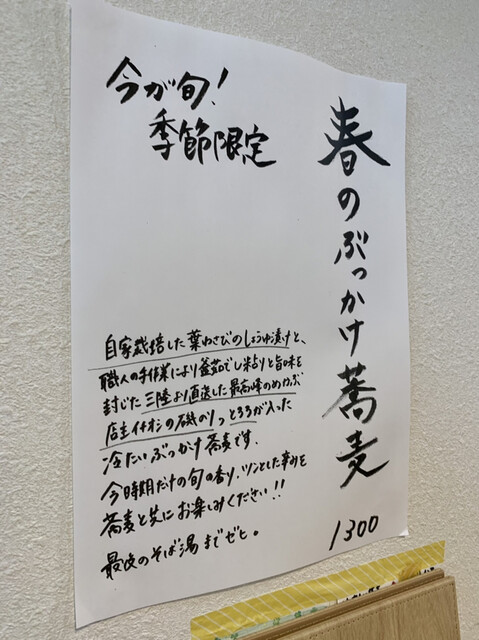 今が旬!
季節限定
春のぶっかけ蕎麦
1300
自家栽培した葉わさびのしょうゆ漬けと、
職人の手作業により釜茹でし粘りと旨味を
封じた三陸より直送した最高峰のめかぶ
店主イチオシの磯のりっとろろが入った
冷たいぶっかけ蕎麦です.
今時期だけの旬の香り.ツンとした辛みを
蕎麦と共にお楽しみください!!
最後のそば湯までゼヒ。